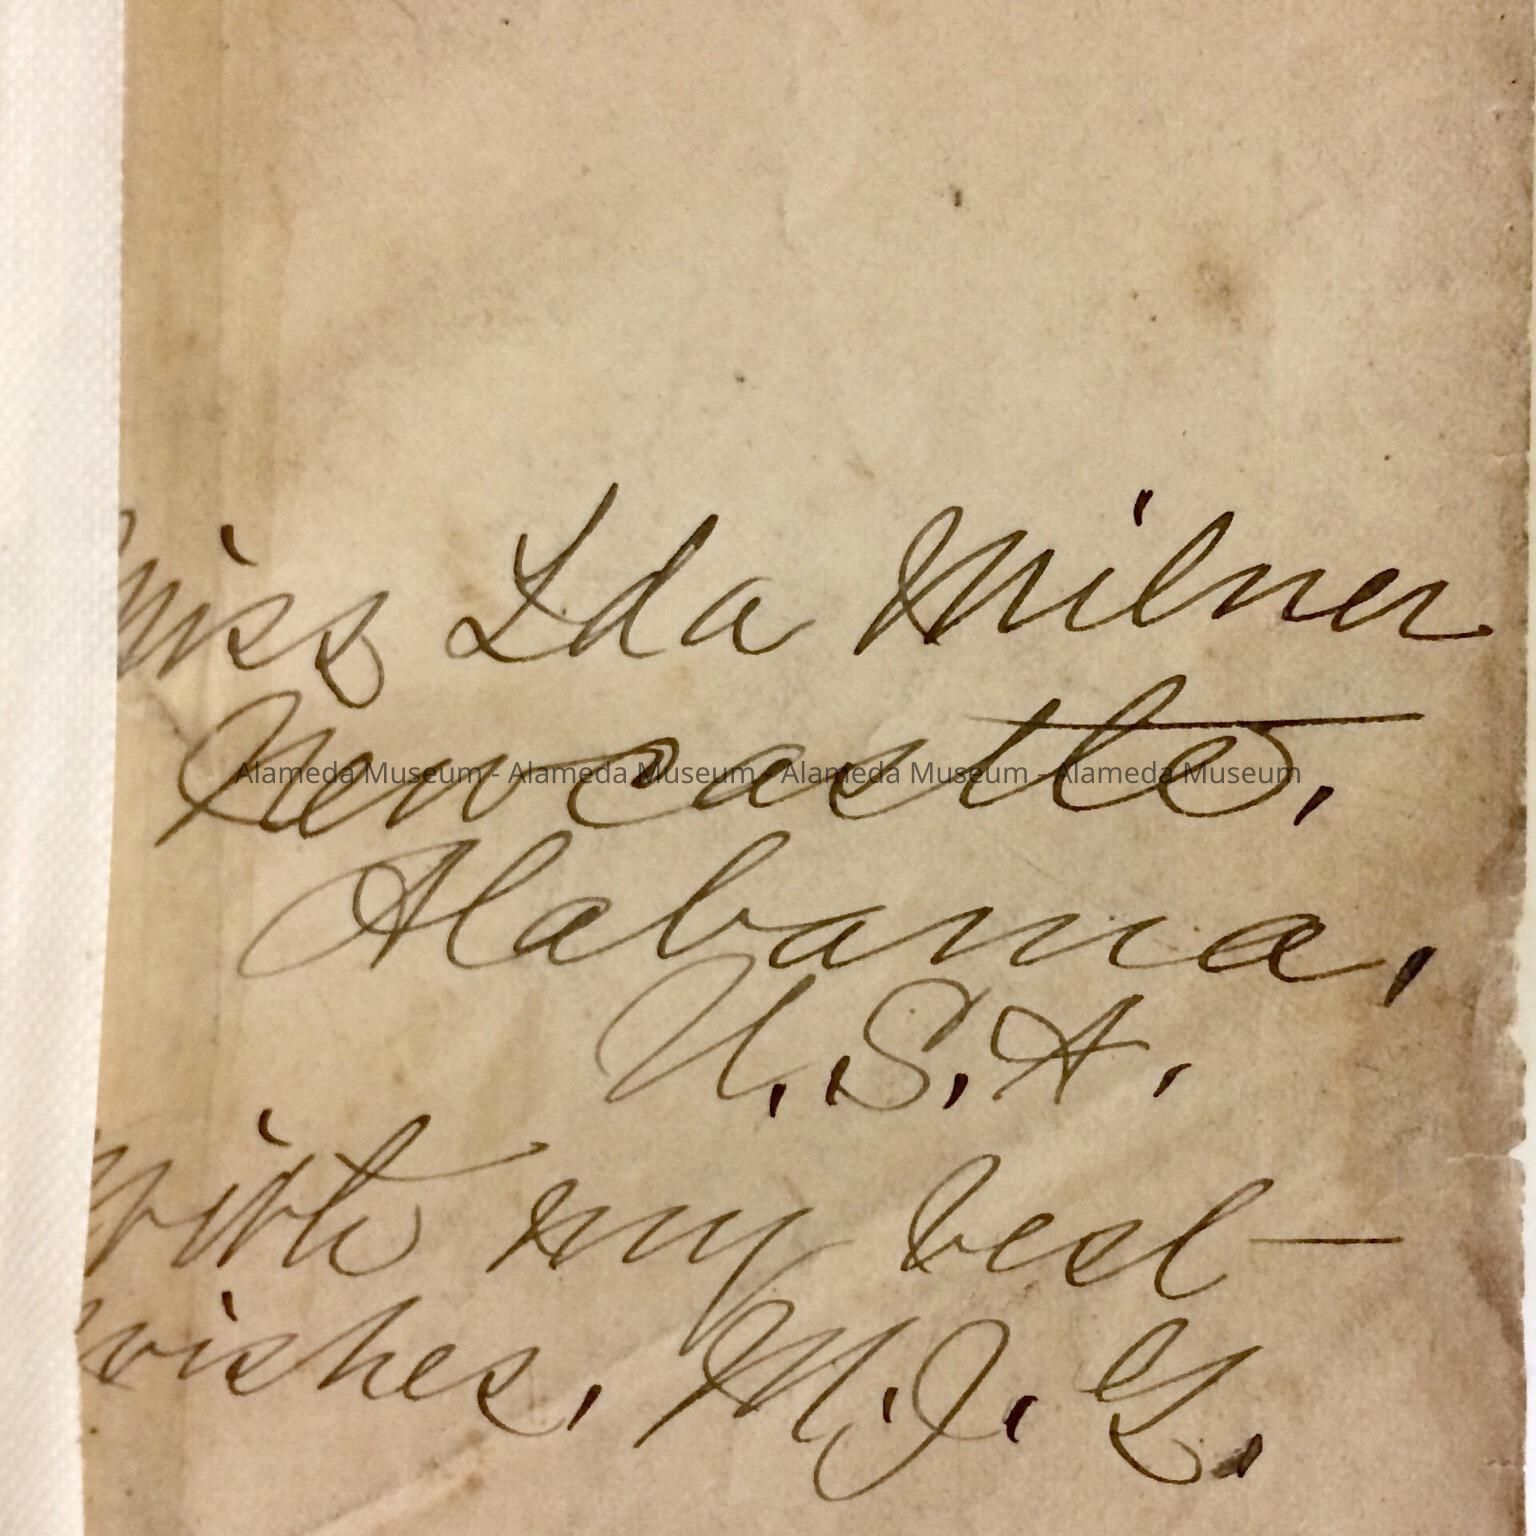 Miss Ida Milner
Newcastle,
Alameda Museum - Alameda Museum - Alameda Museum - Alameda Museum
Alabama,
U.S.A.
With my best
wishes, M.J.G.